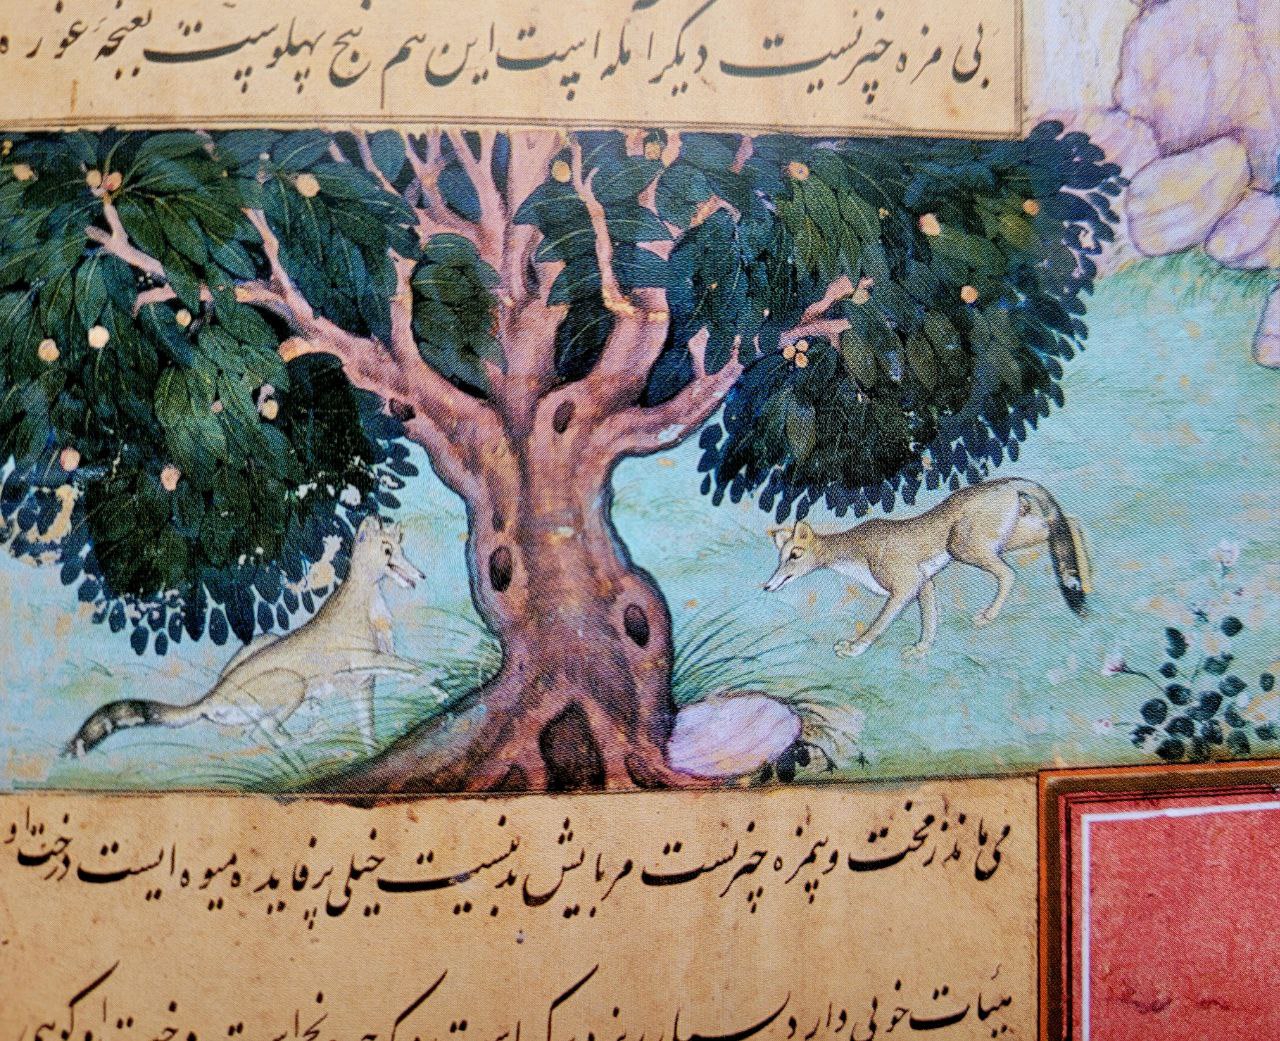 بی مزه چیز نیست دیگر آمله است این هم پنج پهلوست بغنچه غوزه
می ماند زمخت و بیمزه چیز نیست مربایش بد نیست خیلی پر فایده میوه ایست درخت او
بیأت خوبی دارد